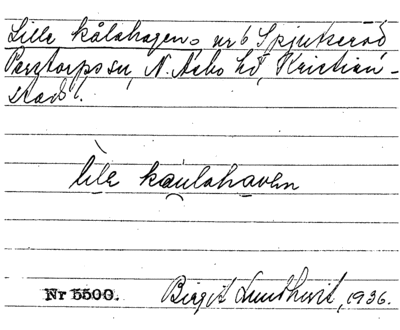 Lille kålahagen, nr 6 Spjutseröd
Perstorps sn, N. Åsbo hd, Kristian-
stad.
lile kaulahaven
Nr 5500. Birgit Lundkvist, 1936.